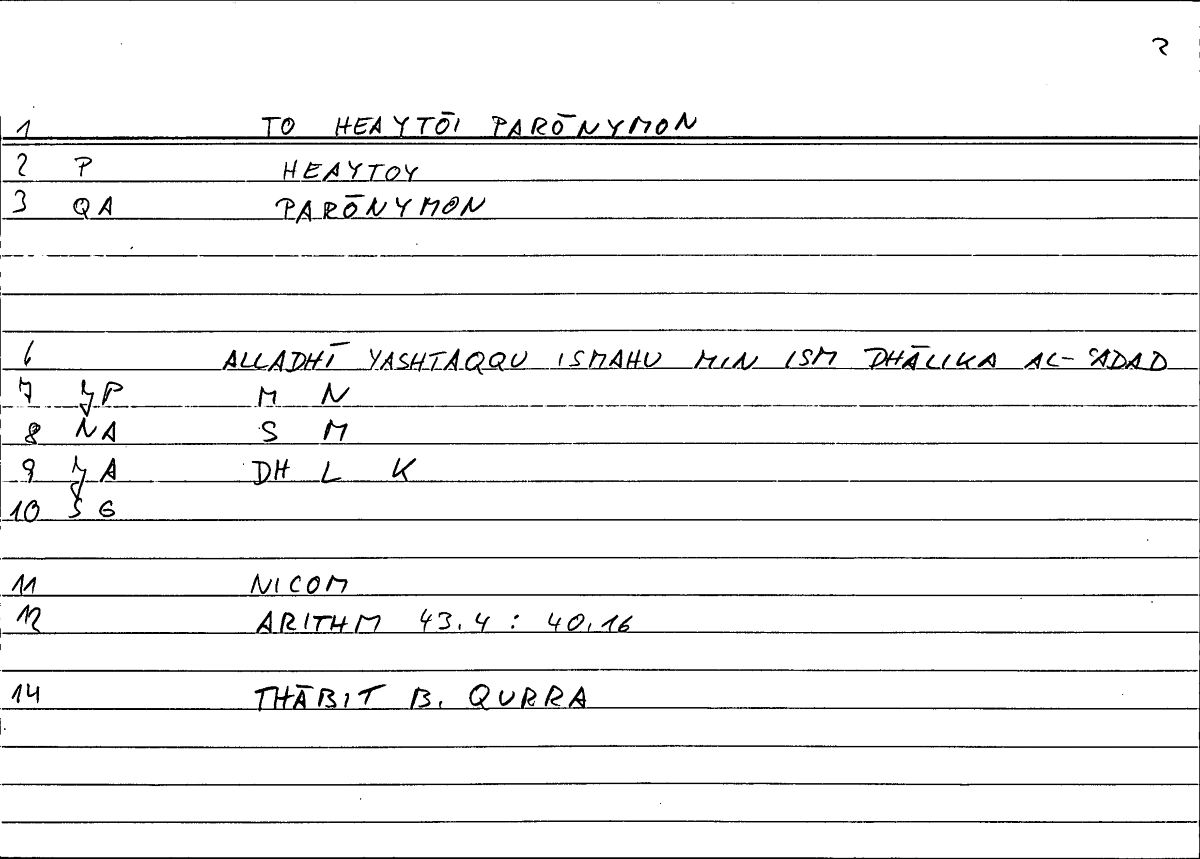 1 TO HEAYTŌI PARŌNYMON
2 P HEAYTOY
3 QA PARŌNYMON
6 ALLADHĪ YASHTAQQU ISMAHU MIN ISM DHĀLIKA AL-ʿADAD
7 P M N
8 NA S M
9 A DH L K
10 SG
11 NICOM
12 ARITHM 43.4 : 40.16
14 THĀBIT B. QURRA